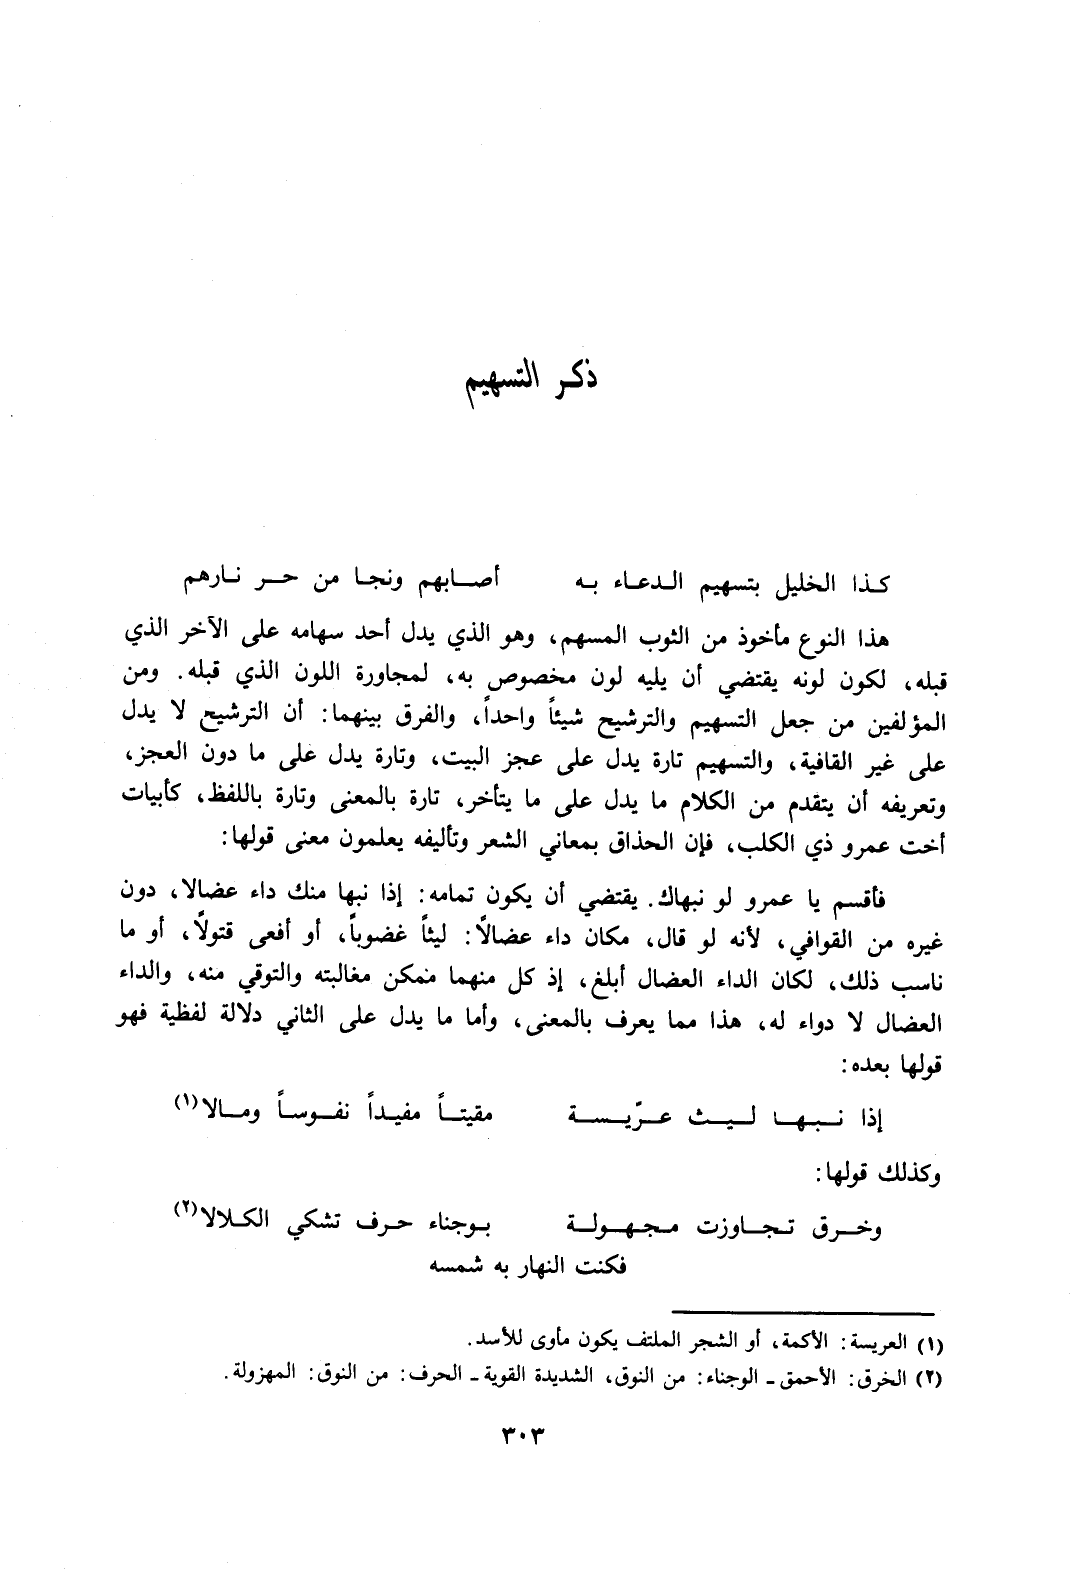 ذكر التسهيم
كذا الخليل بتسهيم الدعاء به أصابهم ونجا من حر نارهم
هذا النوع مأخوذ من الثوب المسهم، وهو الذي يدل أحد سهامه على الآخر الذي
قبله، لكون لونه يقتضي أن يليه لون مخصوص به، لمجاورة اللون الذي قبله. ومن
المؤلفين من جعل التسهيم والترشيح شيئاً واحداً، والفرق بينهما: أن الترشيح لا يدل
على غير القافية، والتسهيم تارة يدل على عجز البيت، وتارة يدل على ما دون العجز،
وتعريفه أن يتقدم من الكلام ما يدل على ما يتأخر، تارة بالمعنى وتارة باللفظ، كأبيات
أخت عمرو ذي الكلب، فإن الحذاق بمعاني الشعر وتأليفه يعلمون معنى قولها:
فأقسم يا عمرو لو نبهاك. يقتضي أن يكون تمامه: إذا نبها منك داء عضالا، دون
غيره من القوافي، لأنه لو قال، مكان داء عضالاً: ليثاً غضوباً، أو أفعى قتولاً، أو ما
ناسب ذلك، لكان الداء العضال أبلغ، إذ كل منهما ممكن مغالبته والتوقي منه، والداء
العضال لا دواء له، هذا مما يعرف بالمعنى، وأما ما يدل على الثاني دلالة لفظية فهو
قولها بعده:
إذا نبها ليث عرّيسة مقيتاً مفيداً نفوساً ومالا(١)
وكذلك قولها:
وخرق تجاوزت مجهولة بوجناء حرف تشكي الكلالا(٢)
فكنت النهار به شمسه
(١) العريسة: الأكمة، أو الشجر الملتف يكون مأوى للأسد.
(٢) الخرق: الأحمق ـ الوجناء: من النوق، الشديدة القوية ـ الحرف: من النوق: المهزولة.
٣٠٣